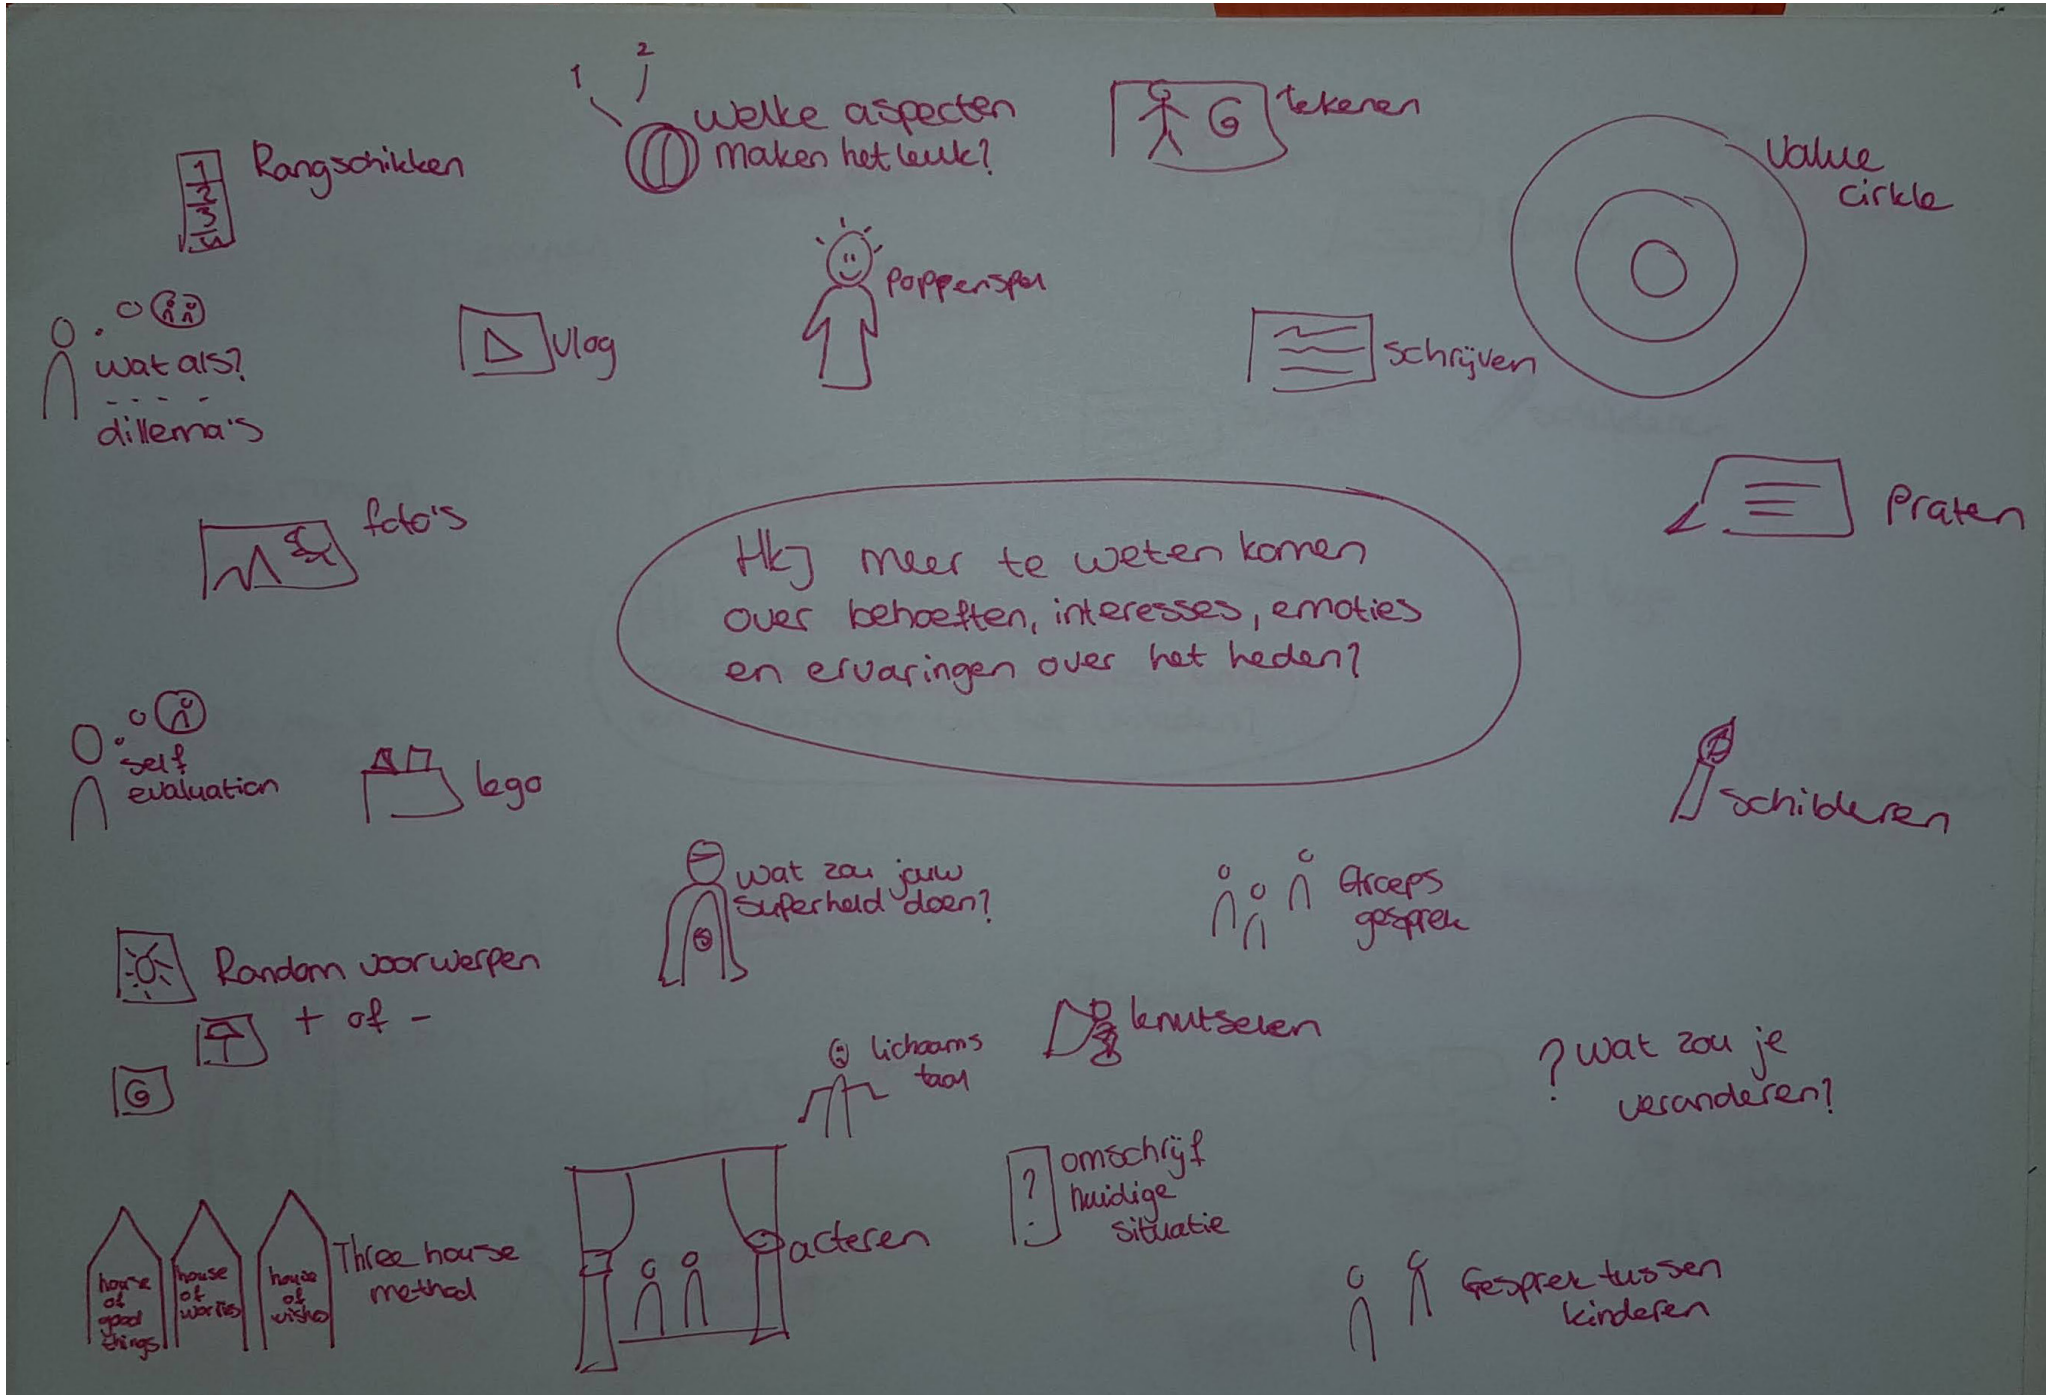 1
2
welke aspecten
maken het leuk?
tekenen
value
cirkle
1
2
3
4
Rangschikken
poppenspel
wat als?
dillema's
vlog
schrijven
foto's
Praten
Hkj meer te weten komen
over behoeften, interesses, emoties
en ervaringen over het heden?
self
evaluation
lego
schilderen
wat zou jouw
superheld doen?
Groeps
gesprek
Random voorwerpen
+ of -
lichaams
taal
knutselen
? wat zou je
veranderen?
?
omschrijf
huidige
situatie
house
of
good
things
house
of
worries
house
of
wishes
Three house
method
acteren
Gesprek tussen
kinderen